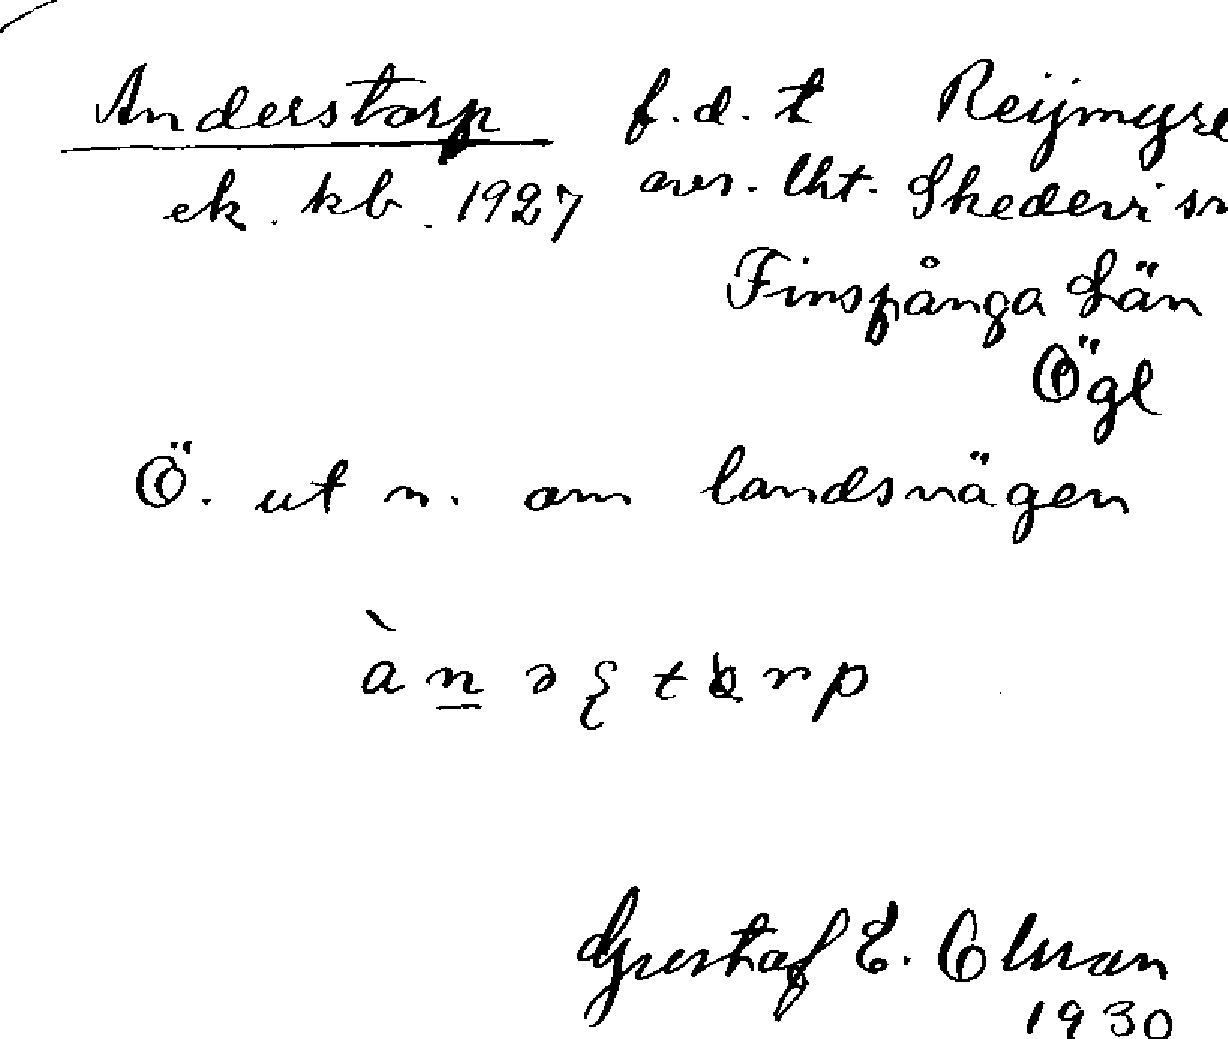 Anderstorp f.d.t Reijmyre
ek. kb. 1927 avs. lht. Skedevi sn
Finspånga Län
Ögl
Ö. ut n. om landsvägen
Gustaf E.
1930